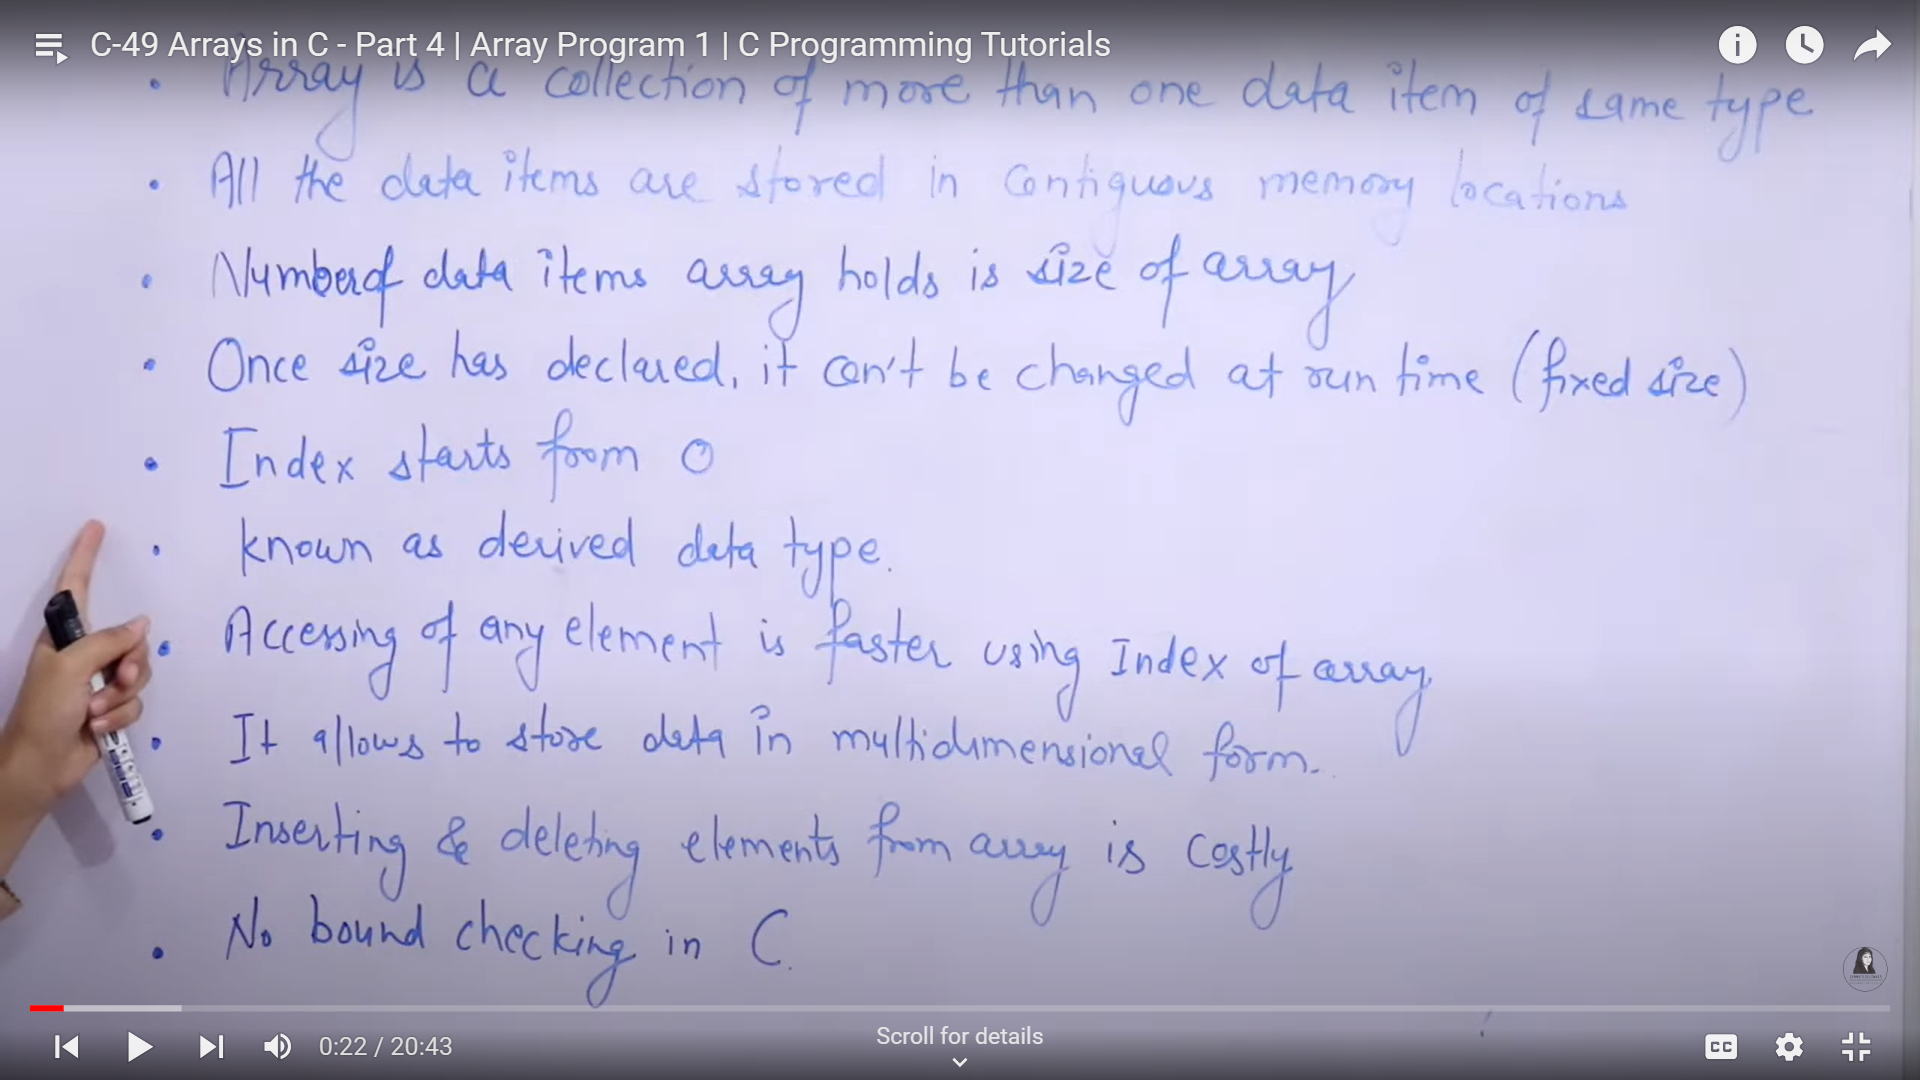 C-49 Arrays in C - Part 4 | Array Program 1 | C Programming Tutorials
• Array is a collection of more than one data item of same type
• All the data items are stored in contiguous memory locations
• Number of data items array holds is size of array
• Once size has declared, it can't be changed at run time (fixed size)
• Index starts from 0
• known as derived data type.
• Accessing of any element is faster using Index of array
• It allows to store data in multidimensional form.
• Inserting & deleting elements from array is costly
• No bound checking in C.
0:22 / 20:43
Scroll for details
CC